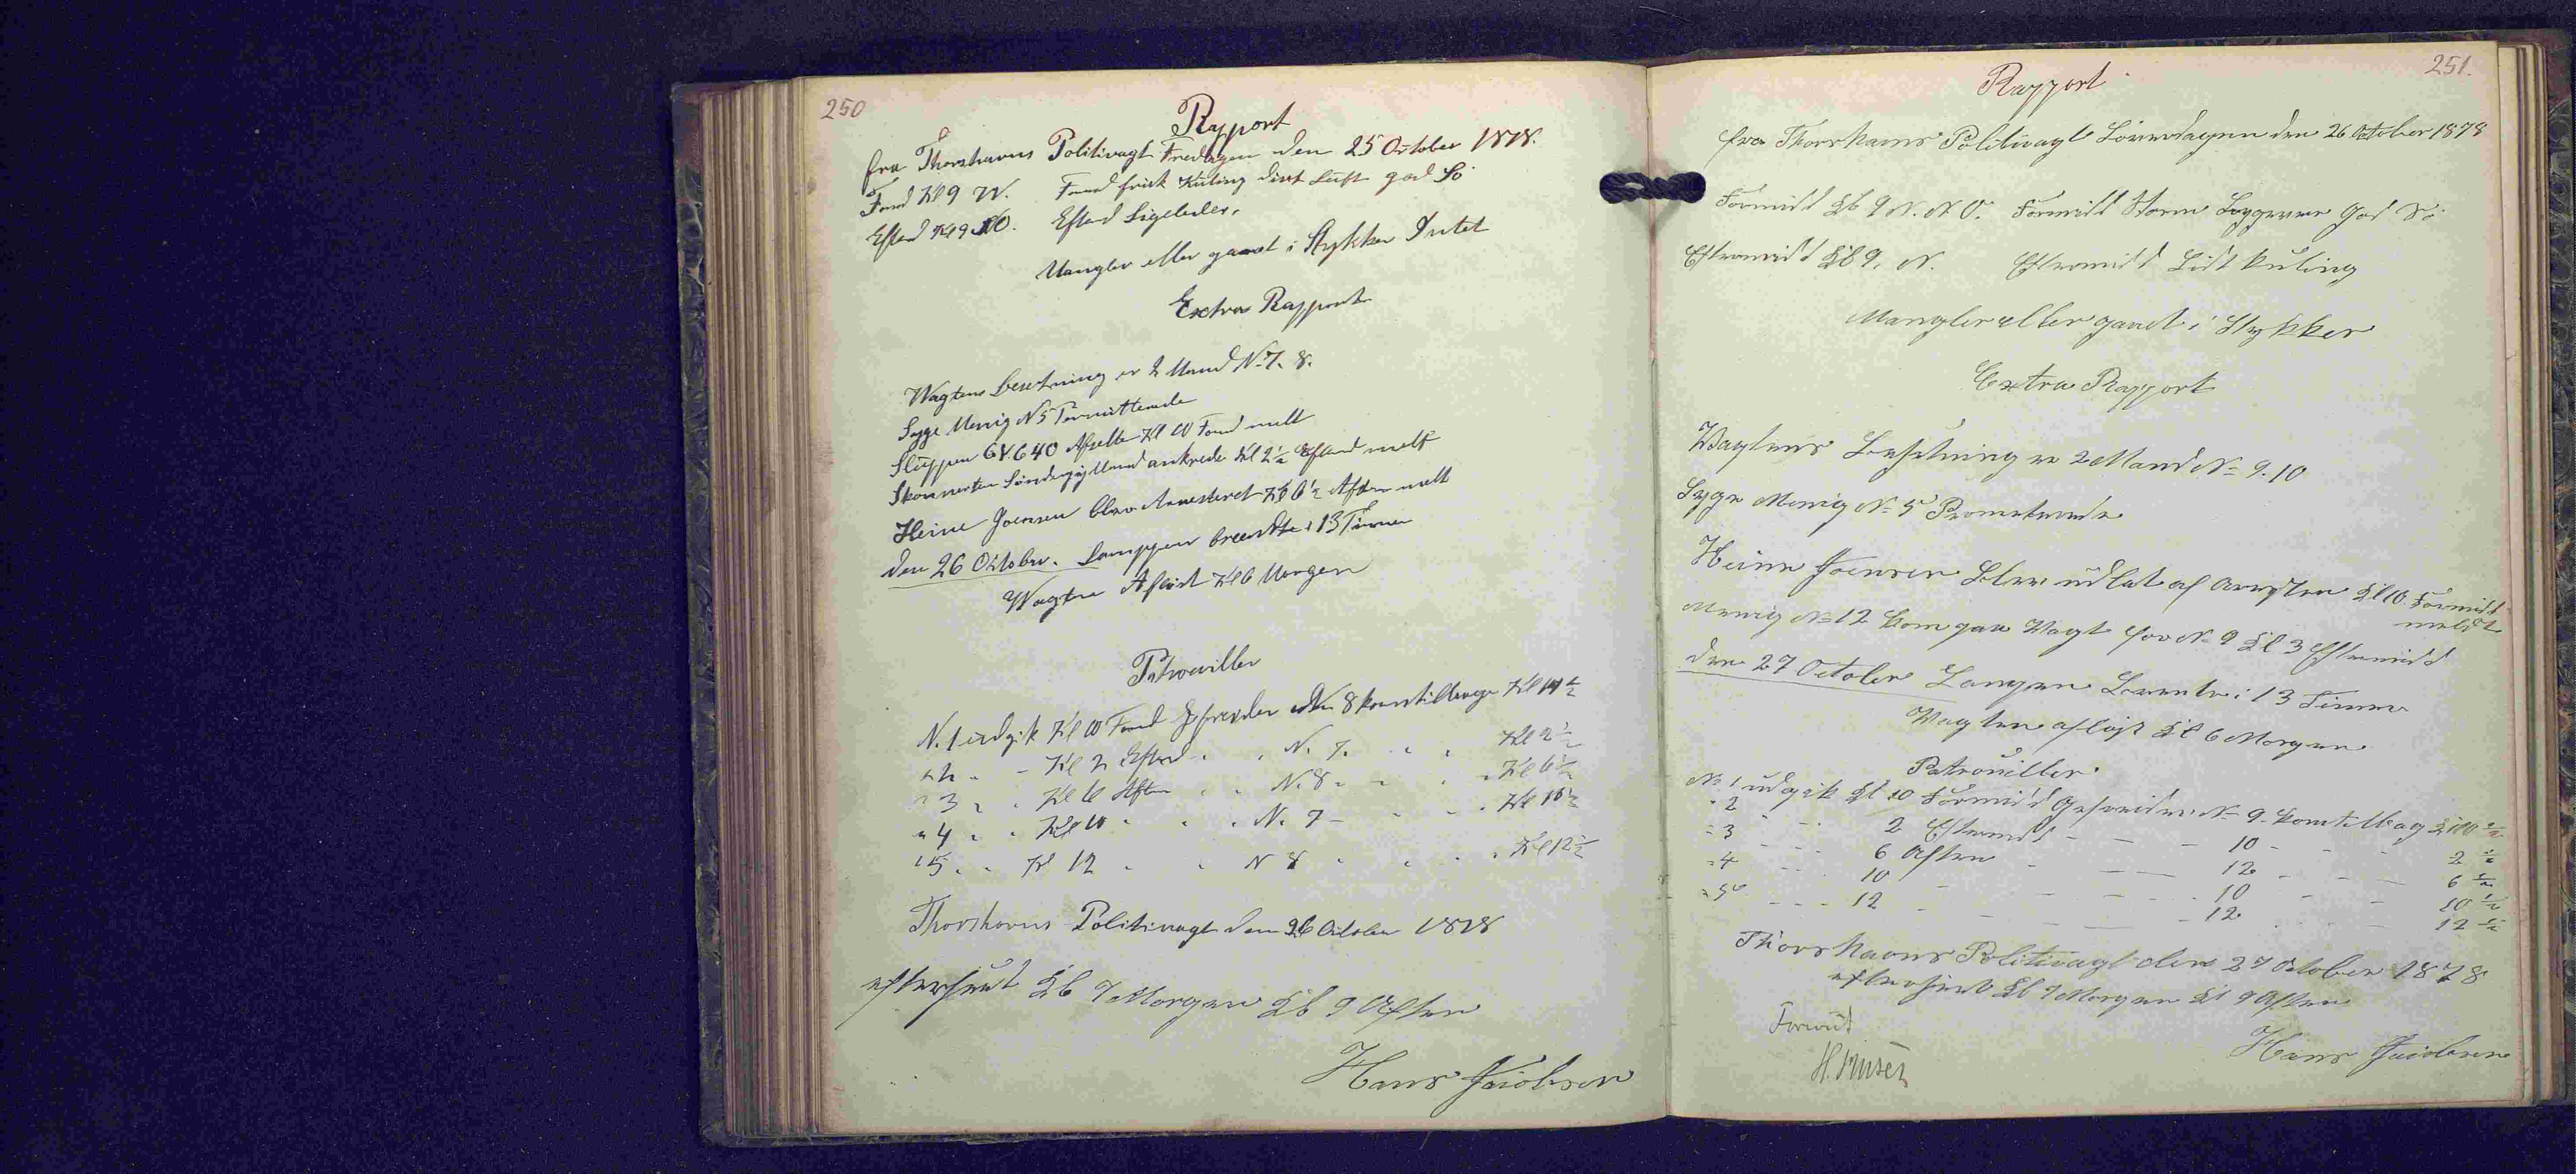 250
Rapport
fra Thorshavns Politivagt Fredagen den 25 October 1878.
Formd Kl 9 W. Formd frisk Kuling dist Luft god Sö
Efterd Kl 9 NO. Efterd Ligeledes.
Mangler eller gaaet i Stykker Intet
Extra Rapport
Wagtens besetning er 2 Mand No 7. 8.
Syge Menig No 5
Sluppen GY640 Afseilte Kl 10 Formd melt
Skonnerten Sönderjylland ankrede Kl 2½ Efterd melt
Heine Joensen blev Arresteret Kl 6½ Aften melt
den 26 October. Lamppen brendte i 13 Timer
Wagten Aflöst Kl 6 Morgen
Patrouiller
N. 1 udgik Kl 10 Formd Gefreider No 8 kom tilbage Kl 10½
" 2 " - Kl 2 Efterd " " N. 7. " " Kl 2½
" 3 " " Kl 6 Aften " " N. 8 " " " Kl 6½
" 4 " " Kl 10 " " " N. 7 - " - " Kl 10½
" 5 " " Kl 12 " " N 8 " " " " Kl 12½
Thorshavns Politivagt den 26 October 1878
eftersent Kl 7 Morgen Kl 9 Aften
Hans Jacobsen
251.
Rapport
fra Thorshavns Politivagt Löverdagen den 26 October 1878
Formidd Kl 9 N. N. O. Formidd Storm God Sö
Eftermidd Kl 9. N. Eftermidd Lidt kuling
Mangler eller gaaet i Stykker
Extra Rapport
Vagtens Besetning er 2 Mand No 9. 10
Syge Menig No 5
Heine Joensen blev udlat af Aresten Kl 10 Formidd
meldt
Menig No 12 kom paa Vagt for No 9 Kl 3 Eftermidd
den 27 October Lampen brente i 13 Timer
Vagten aflöst Kl 6 Morgen
Patrouiller
No 1 udgik Kl 10 Formidd Gefreider No 9 kom tilbag Kl 10½
" 2 - - - 2 Eftermidd - - - 10 - - - 2½
" 3 - - - 6 Aften - - - 12 - - - 6½
" 4 - - - 10 - - - 10 - - 10½
" 5 - - - 12 - - - 12 - - - 12½
Thorshavns Politivagt den 27 October 1878
eftersent Kl 7 Morgen Kl 9 Aften
Hans Jacobsen